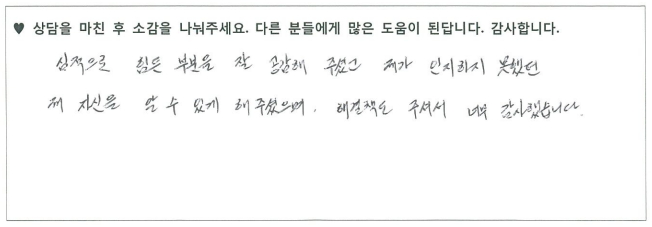 ♥ 상담을 마친 후 소감을 나눠주세요. 다른 분들에게 많은 도움이 된답니다. 감사합니다.
심적으로 힘든 부분을 잘 공감해 주셨고 제가 인지하지 못했던
제 자신을 알 수 있게 해주셨으며, 해결책도 주셔서 너무 감사했습니다.